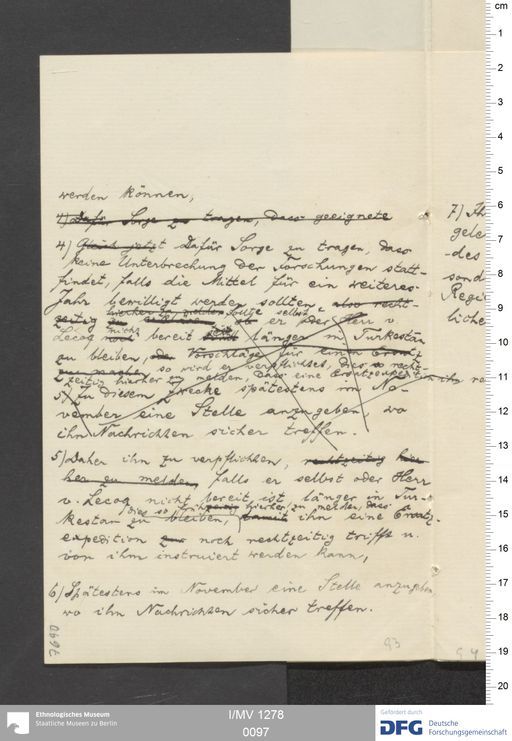 werden können,
4) Dafür Sorge zu tragen, dass geeignete
4) Gleich jetzt Dafür Sorge zu tragen, dass
keine Unterbrechung der Forschungen statt-
findet, falls die Mittel für ein weiteres
Jahr bewilligt werden sollten, also recht-
zeitig zu er oder Herr v.
hierher zu melden, falls selbst
Lecoq nicht bereit sind länger in Turkestan
zu bleiben, der Vorschläge für einen Ersatz
zu machen, so wird er verpflichtet, dies so recht-
zeitig hierher zu melden, dass eine Ersatzexpedition ihn
5) Zu diesem Zwecke spätestens im No-
vember eine Stelle anzugeben, wo
ihn Nachrichten sicher treffen.
5) Daher ihn zu verpflichten, rechtzeitig hier-
her zu melden, falls er selbst oder Herr
v. Lecoq nicht bereit ist länger in Tur-
dies so frühzeitig hierher zu melden, dass
kestan zu bleiben, damit ihn eine Ersatz-
expedition zur noch rechtzeitig trifft u.
von ihm instruiert werden kann,
6) Spätestens im November eine Stelle anzugeben
wo ihn Nachrichten sicher treffen.
7)
gele
des
sond
Regi
liche
93
94
cm
1
2
3
4
5
6
7
8
9
10
11
12
13
14
15
16
17
18
19
20
Ethnologisches Museum
Staatliche Museen zu Berlin
I/MV 1278
0097
Gefördert durch
DFG
Deutsche
Forschungsgemeinschaft